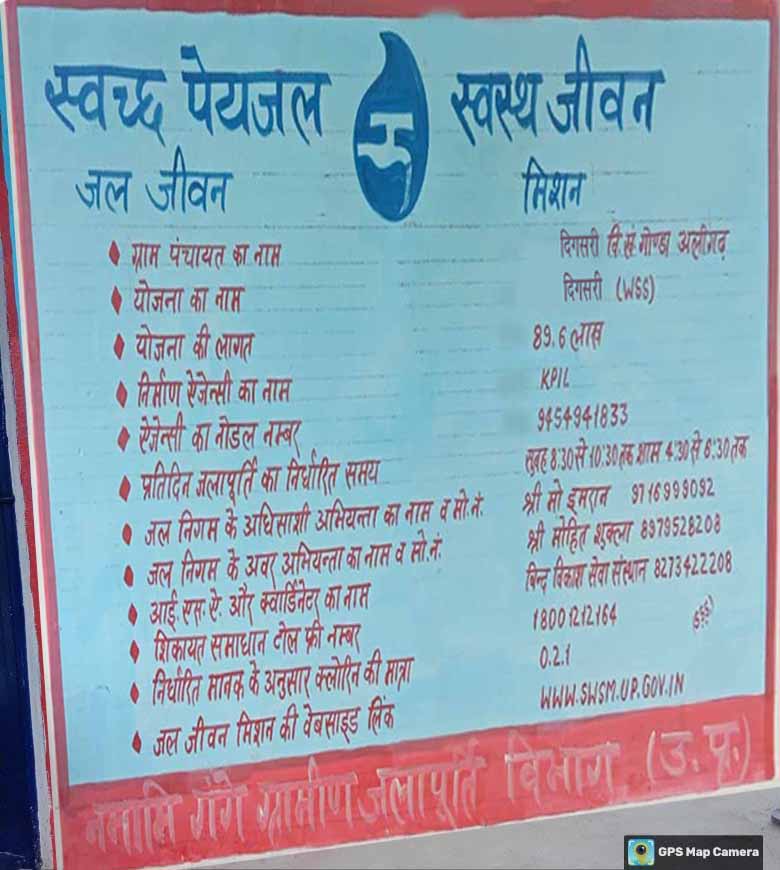 स्वच्छ पेयजल स्वस्थ जीवन
जल जीवन मिशन
ग्राम पंचायत का नाम दिगसरी वि.खं. गोण्डा अलीगढ़
योजना का नाम दिगसरी (WSS)
योजना की लागत 89.6 लाख
निर्माण ऐजेन्सी का नाम KPIL
ऐजेन्सी का नोडल नम्बर 9454941833
प्रतिदिन जलापूर्ति का निर्धारित समय सुबह 8:30 से 10:30 तक शाम 4:30 से 6:30 तक
जल निगम के अधिसाशी अभियन्ता का नाम व मो.नं. श्री मो इमरान 9716999092
जल निगम के अवर अभियन्ता का नाम व मो.नं. श्री मोहित शुक्ला 8979528208
आई.एस.ऐ. और क्वार्डिनेटर का नाम बिन्द विकाश सेवा संस्थान 8273422208
शिकायत समाधान टोल फ्री नम्बर 18001212164
निर्धारित मानक के अनुसार क्लोरिन की मात्रा 0.2.1
जल जीवन मिशन की वेबसाइड लिंक WWW.SWSM.UP.GOV.IN
नमामि गंगे ग्रामीण जलापूर्ति विभाग (उ.प्र.)
GPS Map Camera